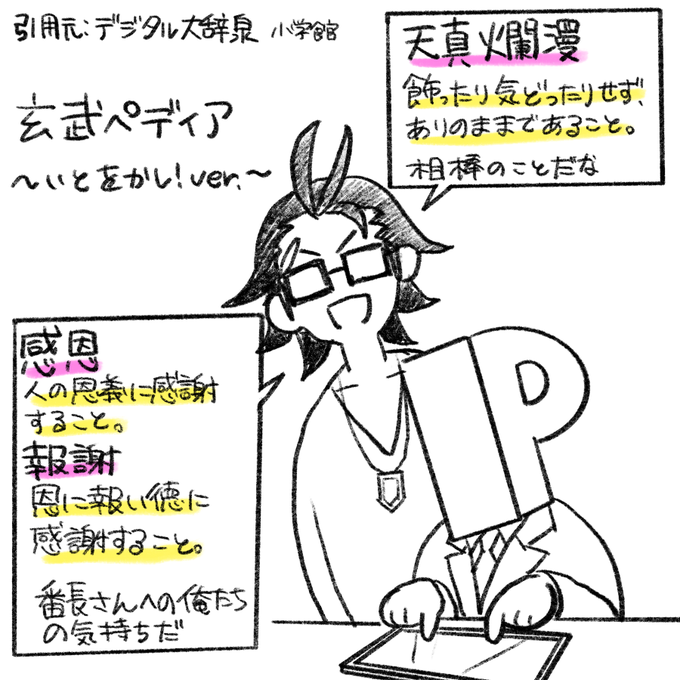 引用元:デジタル大辞泉 小学館
玄武ペディア
～いとをかし!ver.～
天真爛漫
飾ったり気どったりせず、
ありのままであること。
相棒のことだな
感恩
人の恩義に感謝
すること。
報謝
恩に報い徳に
感謝すること。
番長さんへの俺たち
の気持ちだ
P